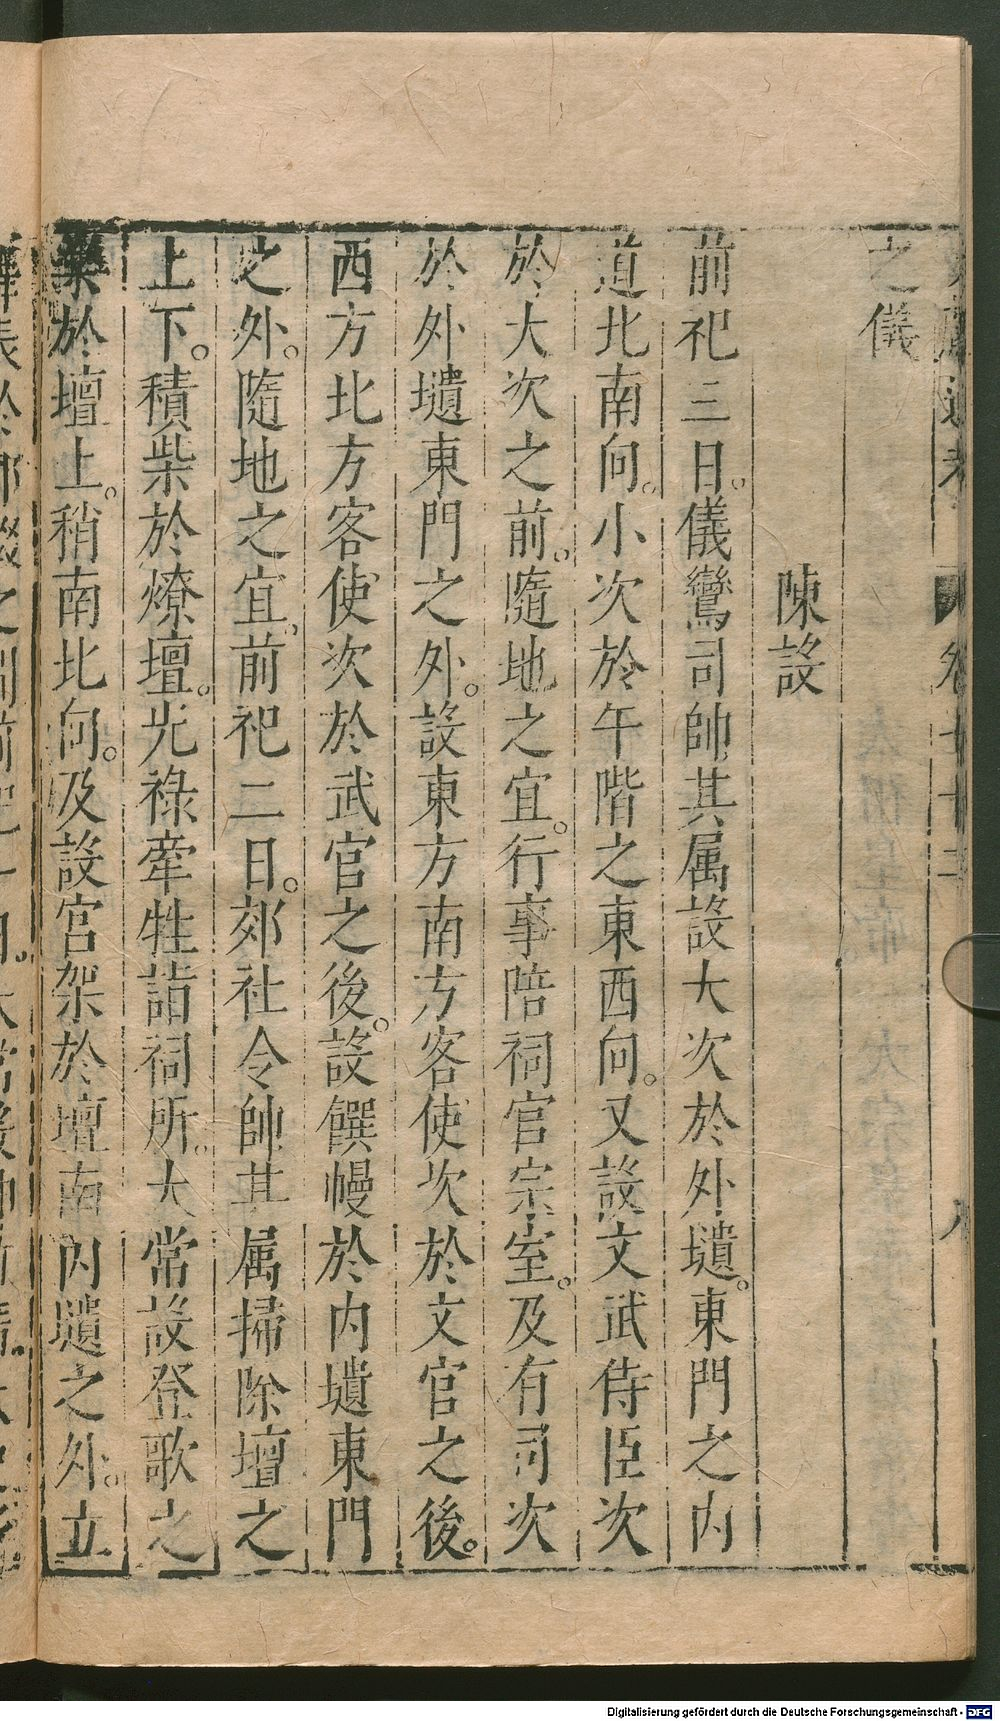 之儀
陳設
前祀三日。儀鸞司帥其属設大次於外壝。東門之内
道北南向。小次於午階之東西向。又設文武侍臣次
於大次之前。隨地之宜。行事陪祠官宗室。及有司次
於外壝東門之外。設東方南方客使次於文官之後。
西方北方客使次於武官之後。設饌幔於内壝東門
之外。隨地之宜。前祀二日。郊社令帥其属掃除壇之
上下。積柴於燎壇。光祿牽牲詣祠所。大常設登歌之
樂於壇上。稍南北向。及設宮架於壇南内壝之外。立
Digitalisierung gefördert durch die Deutsche Forschungsgemeinschaft - DFG